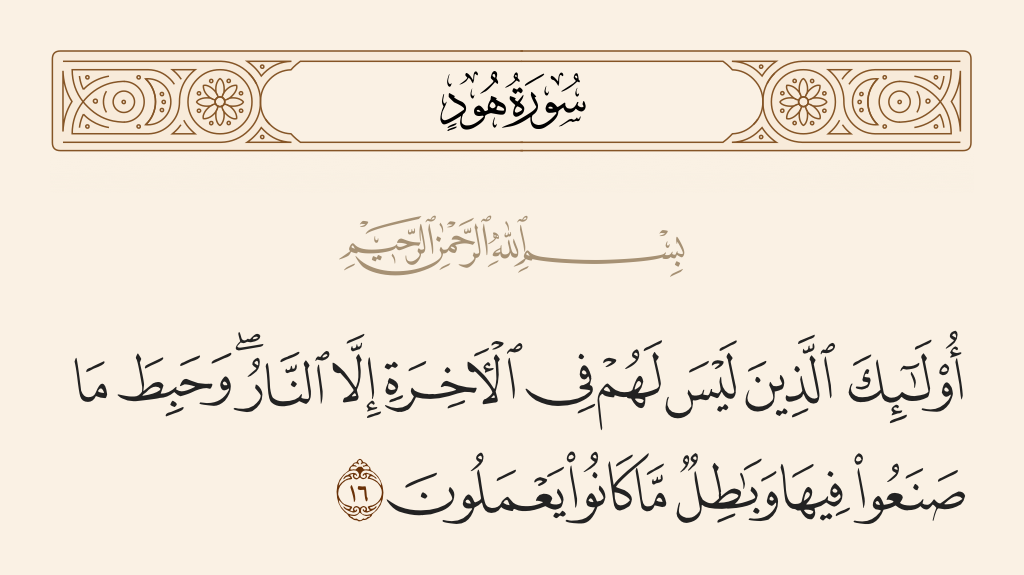 سُورَةُ هُودٍ
بِسْمِ ٱللَّهِ ٱلرَّحْمَٰنِ ٱلرَّحِيمِ
أُو۟لَٰٓئِكَ ٱلَّذِينَ لَيْسَ لَهُمْ فِى ٱلْءَاخِرَةِ إِلَّا ٱلنَّارُ ۖ وَحَبِطَ مَا
صَنَعُوا۟ فِيهَا وَبَٰطِلٌ مَّا كَانُوا۟ يَعْمَلُونَ ١٦